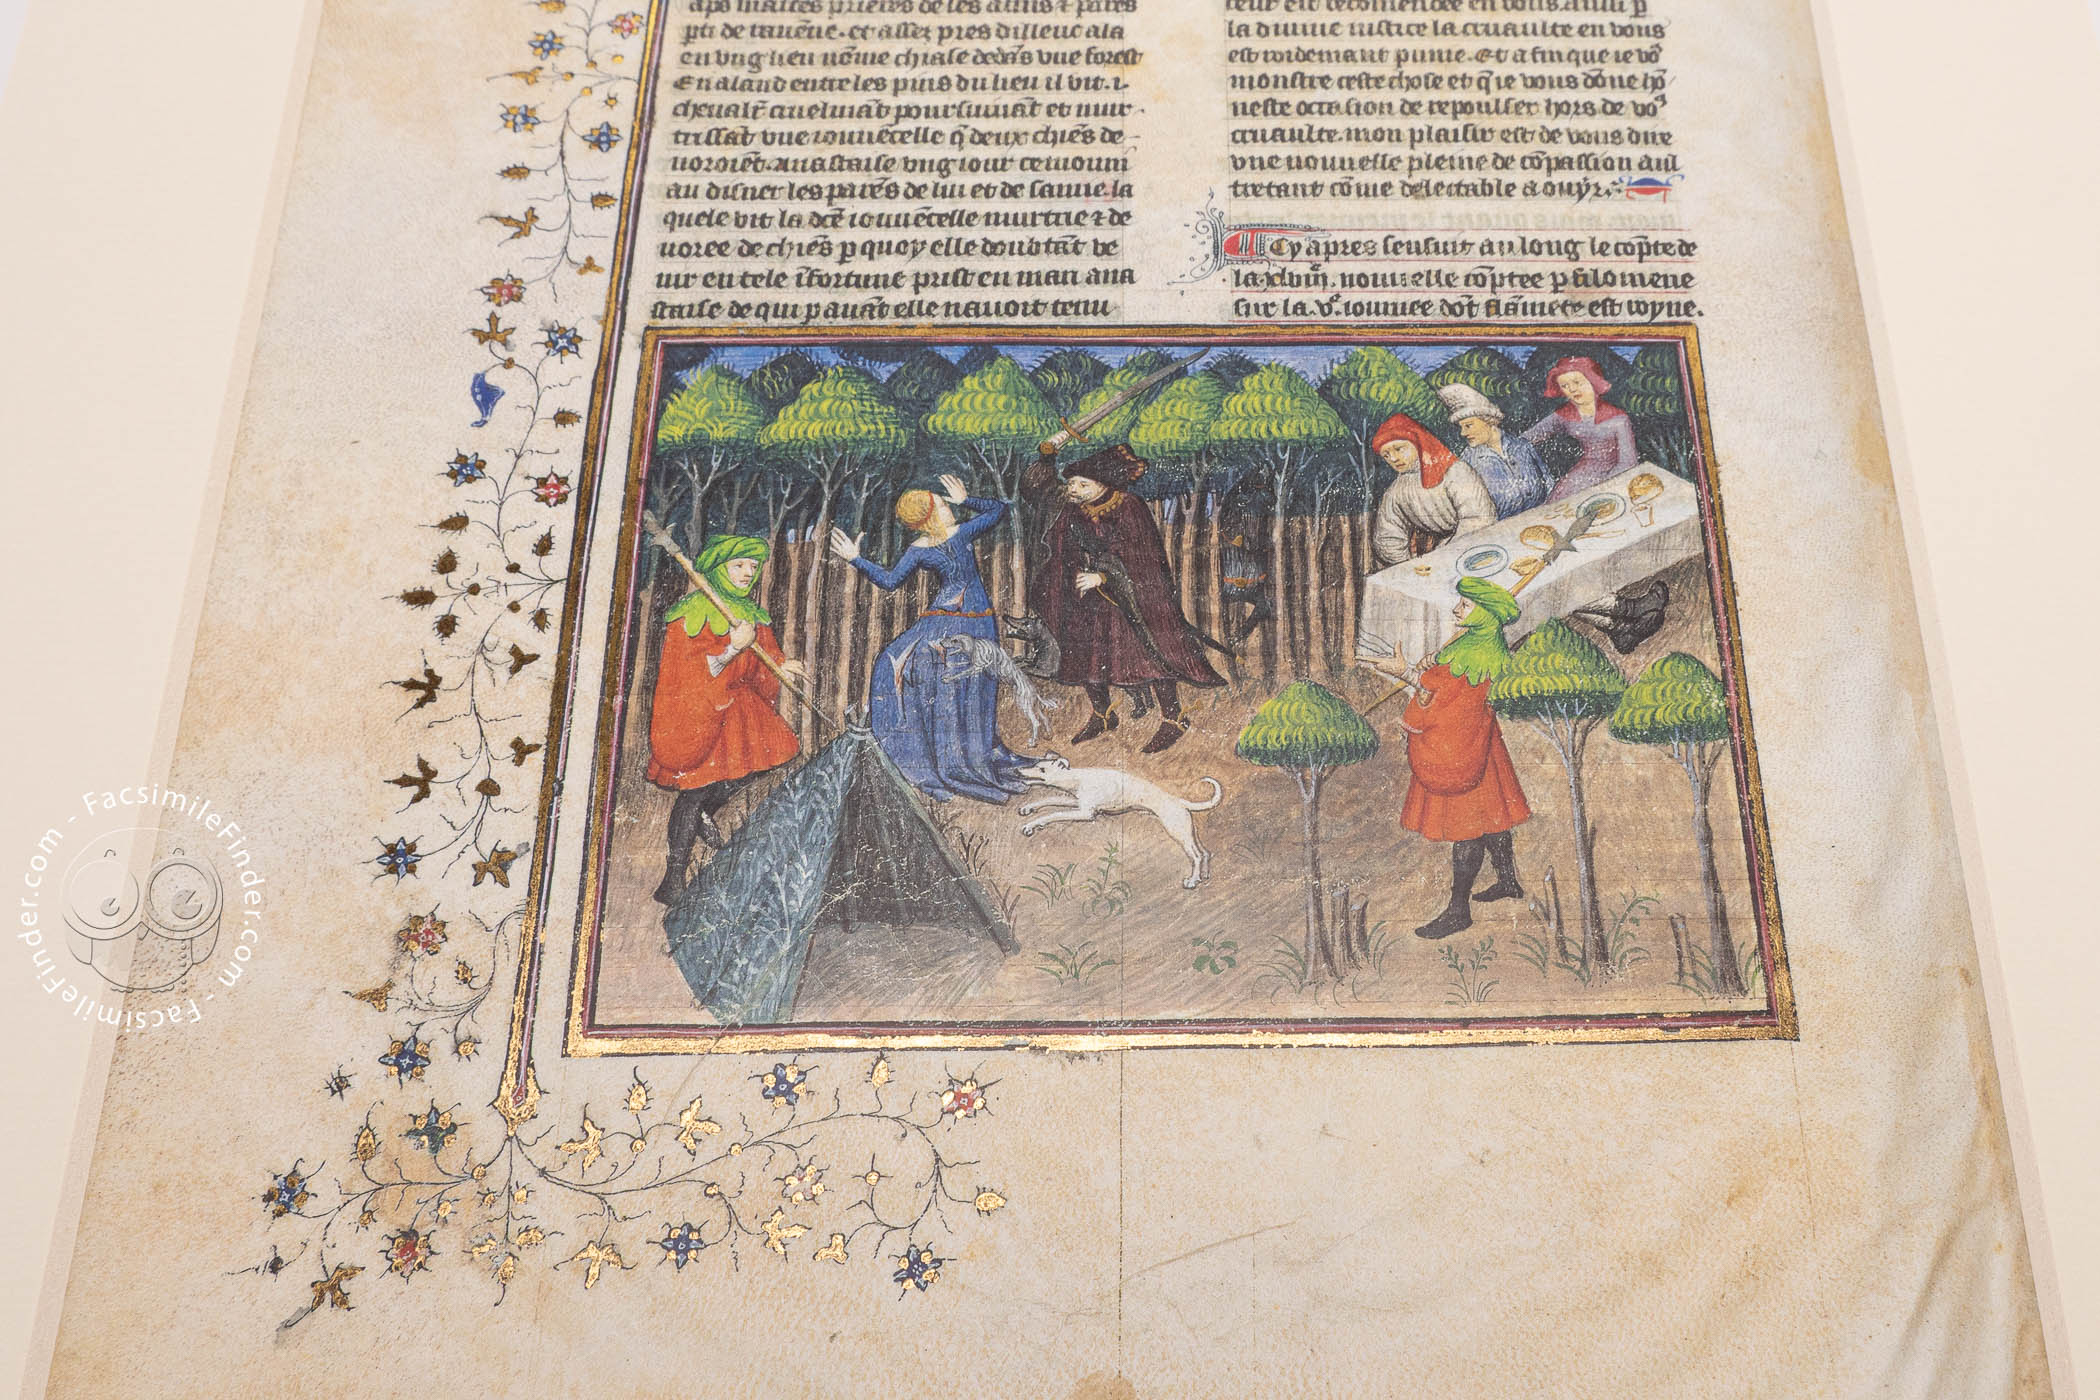 aps maītes prieres de ses amis & parēs
pti de ravēne. et assez pres dilleuc a la
en ung lieu nōme chiase dedās une forest
En alant entre les pins du lieu il vit .i.
chevalr̄ cruelmāt poursuivāt et mur-
trissāt une iouvēcelle q̄ deux chiēs de-
voroiēt. Anastaise ung iour
au disner les parēs de lui et de sa mie. la
quele vit la dcē iouvēcelle murtrie & de
voree de chiēs p quoy elle doubtāt ve
nir en tele īfortune prist en mari ana
staise de qui p avāt elle navoit tenu
est recōmendee en vous. aussi p
la divine iustice la cruaulte en vous
est roidemant punie. Et afin que ie vo9
monstre ceste chose et q̄ ie vous dōne hō-
neste occasion de repoulser hors de vo9
cruaulte. mon plaisir est de vous dire
une nouvelle pleine de cōpassion aus
tretant cōme delectable a ouyr.
Cy apres sensuit au long le cōpte de
la xlviije. nouvelle cōptee p filomene
sur la .ve. iournee dōt flāmete est royne.
FacsimileFinder.com - FacsimileFinder.com - FacsimileFinder.com